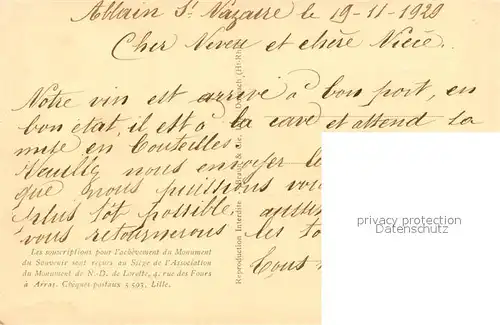 Ablain St Nazaire le 19-11-1929
Cher Neveu et chère Nièce.
Notre vin est arrivé à bon port, en
bon état, il est à la cave et attend sa
mise en bouteilles.
Veuillez nous envoyer le
que nous puissions vou
plus tôt possible.
vous retournerons les to
Tous
Les souscriptions pour l'achèvement du Monument
du Souvenir sont reçues au Siège de l'Association
du Monument de N.-D. de Lorette, 4, rue des Fours
à Arras. Chèques-postaux 5 595, Lille.
Reproduction Interdite - Braun & Cie, Dornach (Ht-Rh)
privacy protection
watermark